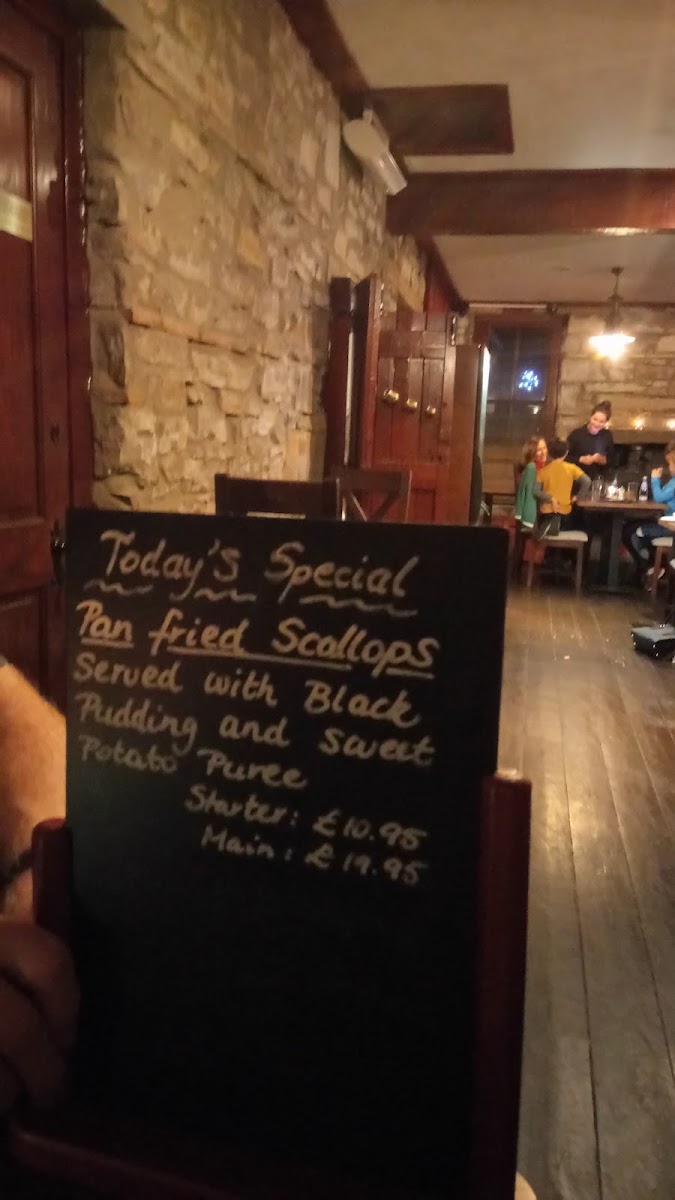 Today's Special
Pan fried Scallops
Served with Black
Pudding and sweet
Potato Puree
Starter: £10.95
Main: £19.95